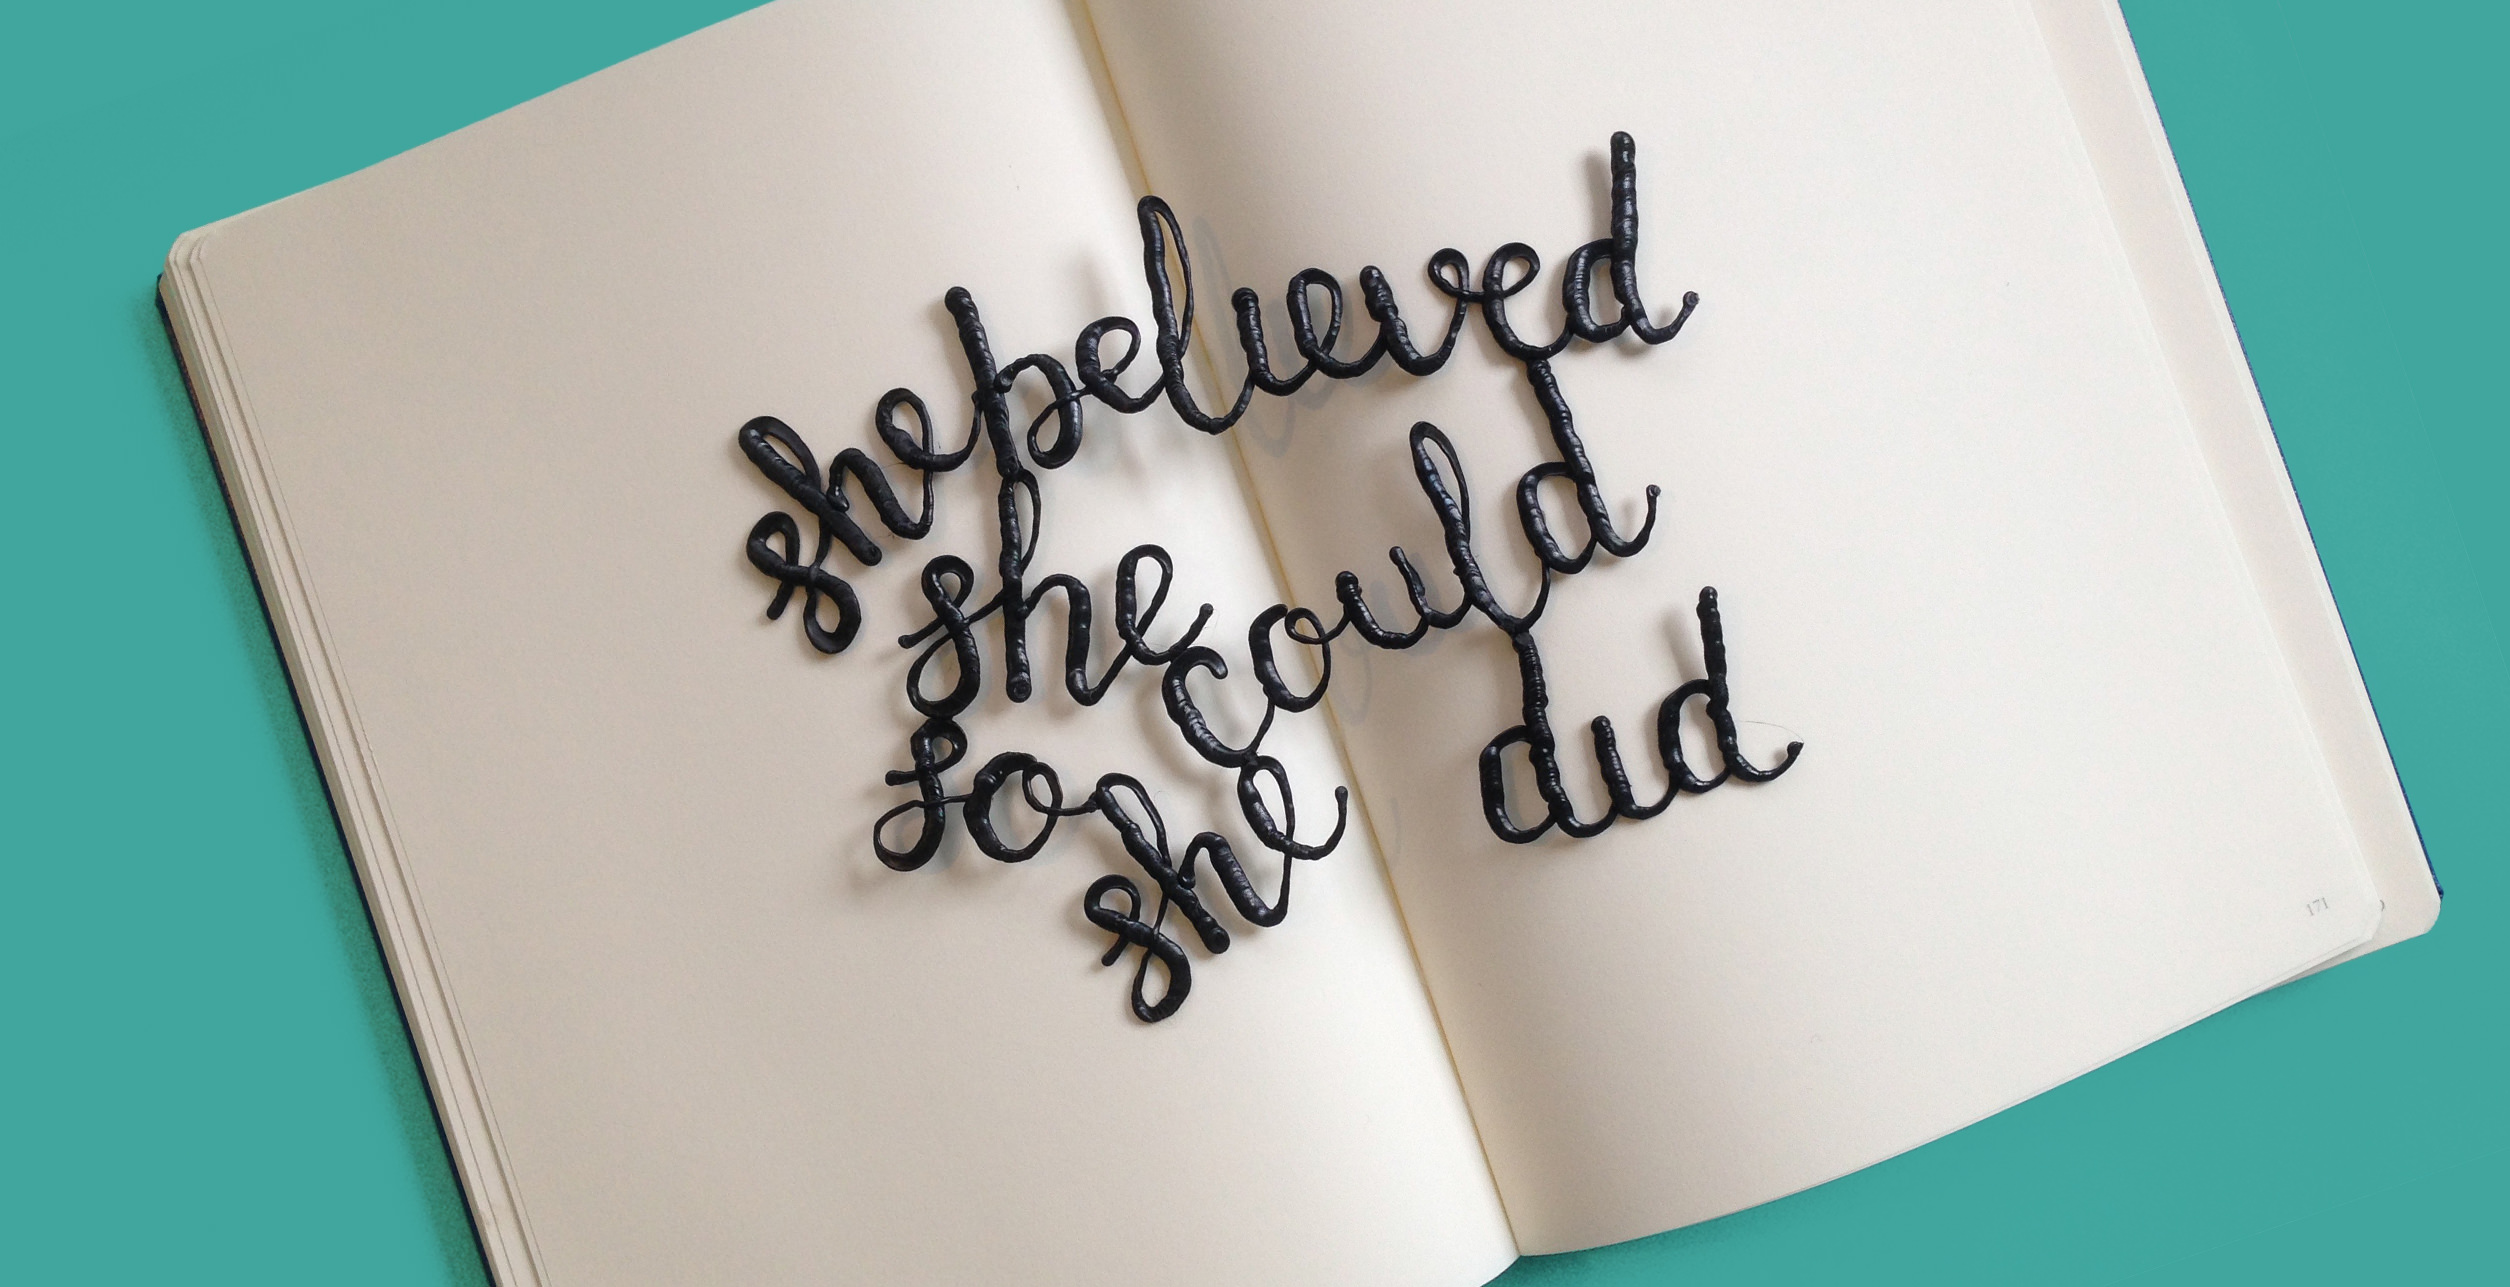 she believed
she could
so she did
171